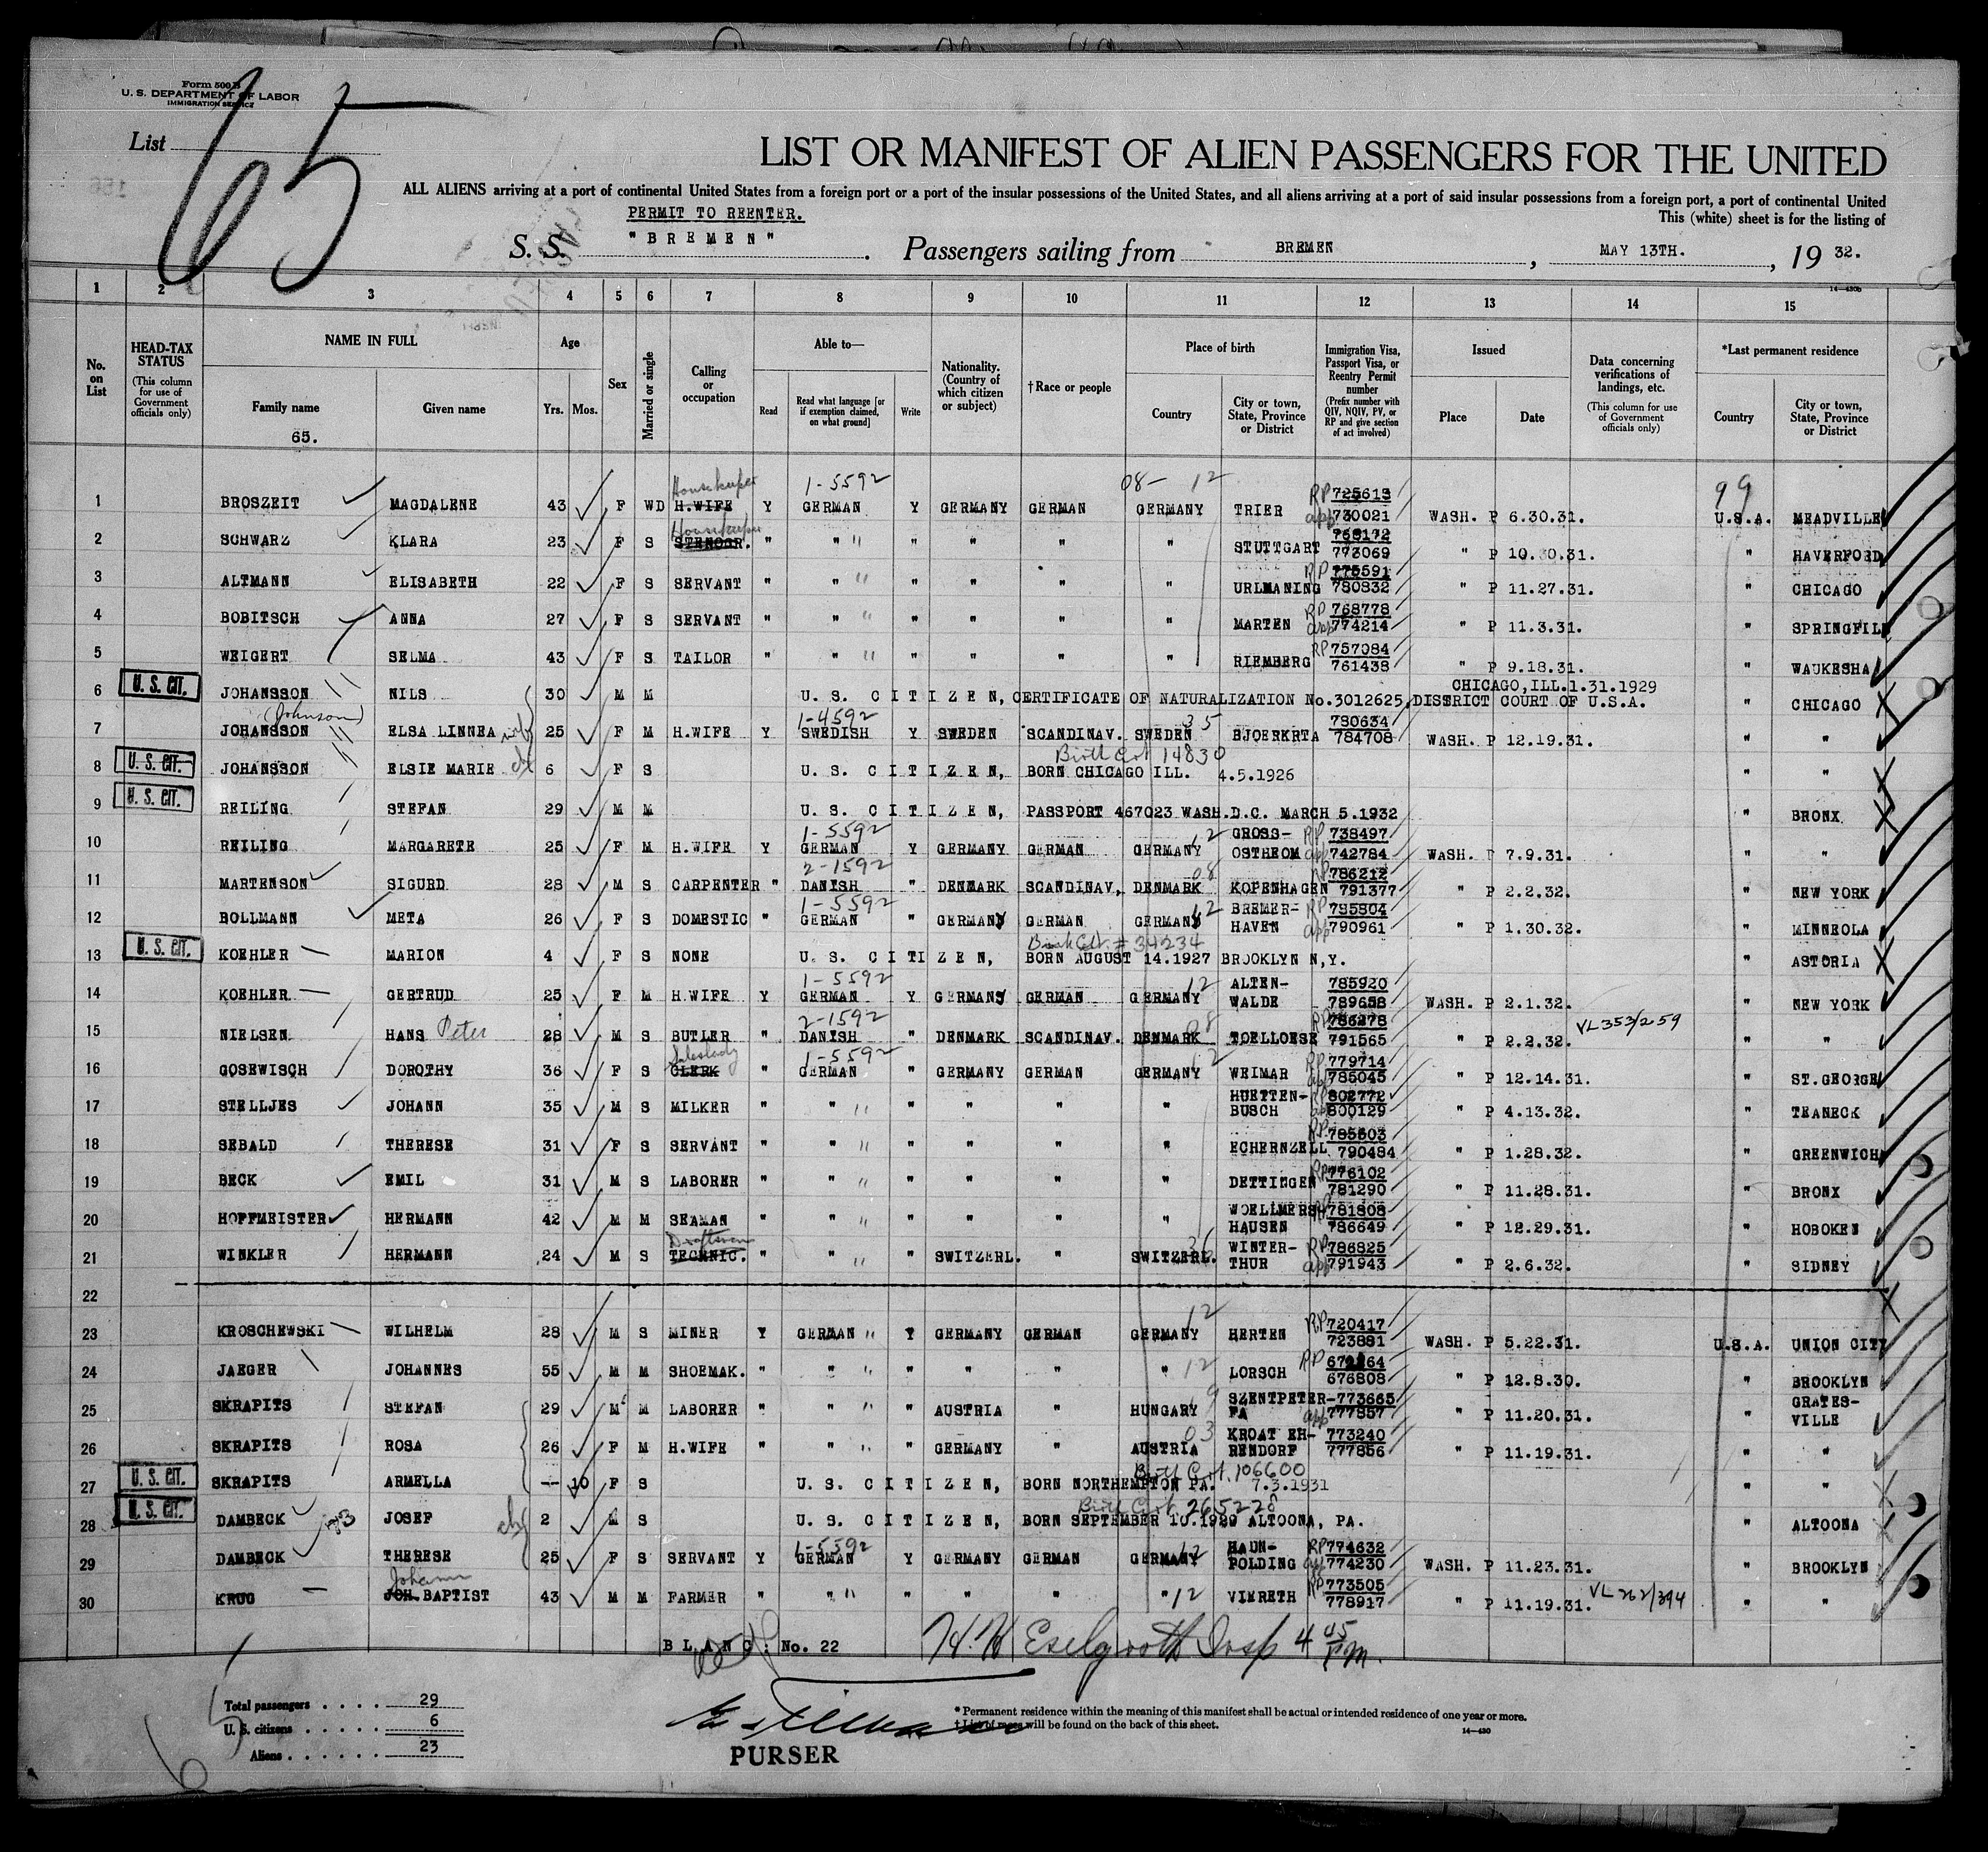 Form 500 B
U. S. DEPARTMENT OF LABOR
IMMIGRATION SERVICE
List
65
LIST OR MANIFEST OF ALIEN PASSENGERS FOR THE UNITED
ALL ALIENS arriving at a port of continental United States from a foreign port or a port of the insular possessions of the United States, and all aliens arriving at a port of said insular possessions from a foreign port, a port of continental United
This (white) sheet is for the listing of
PERMIT TO REENTER.
S. S. "BREMEN". Passengers sailing from BREMEN, MAY 13TH., 19 32.
14—430b
1 2 3 4 5 6 7 8 9 10 11 12 13 14 15
No. on List
HEAD-TAX STATUS (This column for use of Government officials only)
NAME IN FULL
Family name Given name
65.
Age Yrs. Mos.
Sex
Married or single
Calling or occupation
Able to—
Read Read what language [or if exemption claimed, on what ground] Write
Nationality. (Country of which citizen or subject)
†Race or people
Place of birth
Country City or town, State, Province or District
Immigration Visa, Passport Visa, or Reentry Permit number (Prefix number with QIV, NQIV, PV, or RP and give section of act involved)
Issued
Place Date
Data concerning verifications of landings, etc. (This column for use of Government officials only)
*Last permanent residence
Country City or town, State, Province or District
Housekeeper 1-5592 08- 12 RP 725613 99
1 BROSZEIT MAGDALENE 43 F WD H.WIFE Y GERMAN Y GERMANY GERMAN GERMANY TRIER app 730021 WASH. P 6.30.31. U.S.A. MEADVILLE
Housekeeper 768172
2 SCHWARZ KLARA 23 F S STENOGR. " " " " " " " STUTTGART 773069 " P 10.30.31. " HAVERFORD
RP 775591
3 ALTMANN ELISABETH 22 F S SERVANT " " " " " " " URLMANING 780832 " P 11.27.31. " CHICAGO
RP 768778
4 BOBITSCH ANNA 27 F S SERVANT " " " " " " " MARTEN app 774214 " P 11.3.31. " SPRINGFIL
RP 757084
5 WEIGERT SELMA 43 F S TAILOR " " " " " " " RIEMBERG 761438 " P 9.18.31. " WAUKESHA
U. S. CIT. CHICAGO,ILL.1.31.1929
6 JOHANSSON NILS 30 M M U. S. CITIZEN, CERTIFICATE OF NATURALIZATION No.3012625,DISTRICT COURT OF U.S.A. " CHICAGO
(Johnson) 1-4592 35 780634
7 JOHANSSON ELSA LINNEA wif 25 F M H.WIFE Y SWEDISH Y SWEDEN SCANDINAV. SWEDEN BJOERKRTA 784708 WASH. P 12.19.31. " "
U. S. CIT. Birth Cert 14830
8 JOHANSSON ELSIE MARIE ch 6 F S U. S. CITIZEN, BORN CHICAGO ILL. 4.5.1926 " "
U. S. CIT.
9 REILING STEFAN 29 M M U. S. CITIZEN, PASSPORT 467023 WASH.D.C. MARCH 5.1932 " BRONX
1-5592 12 GROSS- RP 738497
10 REILING MARGARETE 25 F M H.WIFE Y GERMAN Y GERMANY GERMAN GERMANY OSTHEOM app 742784 WASH. P 7.9.31. " "
2-1592 08 RP 786212
11 MARTENSON SIGURD 28 M S CARPENTER " DANISH " DENMARK SCANDINAV, DENMARK KOPENHAGEN 791377 " P 2.2.32. " NEW YORK
1-5592 12 BREMER- RP 785804
12 BOLLMANN META 26 F S DOMESTIC " GERMAN " GERMANY GERMAN GERMANY HAVEN app 790961 " P 1.30.32. " MINNEOLA
U. S. CIT. Birth Cert. # 34234
13 KOEHLER MARION 4 F S NONE U. S. CITIZEN, BORN AUGUST 14.1927 BROOKLYN N,Y. " ASTORIA
1-5592 12 ALTEN- 785920
14 KOEHLER GERTRUD 25 F M H.WIFE Y GERMAN Y GERMANY GERMAN GERMANY WALDE 789658 WASH. P 2.1.32. " NEW YORK
2-1592 08 RP 786278 VL 353/259
15 NIELSEN HANS Peter 28 M S BUTLER " DANISH " DENMARK SCANDINAV. DENMARK TOELLOESE 791565 " P 2.2.32. " "
Saleslady 1-5592 12 RP 779714
16 GOSEWISCH DOROTHY 36 F S CLERK " GERMAN " GERMANY GERMAN GERMANY WEIMAR app 785045 " P 12.14.31. " ST.GEORGE
HUETTEN- RP 802772
17 STELLJES JOHANN 35 M S MILKER " " " " " " " BUSCH app 800129 " P 4.13.32. " TEANECK
RP 785503
18 SEBALD THERESE 31 F S SERVANT " " " " " " " ECHERNZELL 790484 " P 1.28.32. " GREENWICH
RP 776102
19 BECK EMIL 31 M S LABORER " " " " " " " DETTINGEN 781290 " P 11.28.31. " BRONX
WOELLMERSH 781808
20 HOFFMEISTER HERMANN 42 M M SEAMAN " " " " " " " HAUSEN 786649 " P 12.29.31. " HOBOKEN
Draftsman 36 WINTER- RP 786825
21 WINKLER HERMANN 24 M S TECHNIC. " " " " SWITZERL. " SWITZERL. THUR app 791943 " P 2.6.32. " SIDNEY
22
12 RP 720417
23 KROSCHEWSKI WILHELM 28 M S MINER Y GERMAN " Y GERMANY GERMAN GERMANY HERTEN 723881 WASH. P 5.22.31. U.S.A. UNION CITY
12 RP 672264
24 JAEGER JOHANNES 55 M M SHOEMAK. " " " " " " " LORSCH 676808 " P 12.8.30. " BROOKLYN
19 SZENTPETER- 773665 GRATES-
25 SKRAPITS STEFAN 29 M M LABORER " " " " AUSTRIA " HUNGARY FA app 777857 " P 11.20.31. " VILLE
03 KROAT EH- 773240
26 SKRAPITS ROSA 26 F M H.WIFE " " " " GERMANY " AUSTRIA RENDORF 777856 " P 11.19.31. " "
U. S. CIT. Birth Cert. 106600
27 SKRAPITS ARMELLA -- 10 F S U. S. CITIZEN, BORN NORTHEMPTON PA. 7.3.1931 " "
U. S. CIT. Birth Cert 265228
28 DAMBECK JOSEF 2 M S U. S. CITIZEN, BORN SEPTEMBER 10.1929 ALTOONA, PA. " ALTOONA
1-5592 12 HAUN- RP 774632
29 DAMBECK THERESE 25 F S SERVANT Y GERMAN Y GERMANY GERMAN GERMANY POLDING app 774230 WASH. P 11.23.31. " BROOKLYN
Johann RP 773505 VL 262/394
30 KRUG JOH. BAPTIST 43 M M FARMER " " " " " " " 12 VIERETH 778917 " P 11.19.31. " "
BLANC: No. 22 H. H Eselgrooth Insp 4 45 P.M.
Total passengers . . . . . 29
U. S. citizens . . . . . 6
Aliens . . . . . . 23
PURSER
* Permanent residence within the meaning of this manifest shall be actual or intended residence of one year or more.
† List of races will be found on the back of this sheet.
14—430